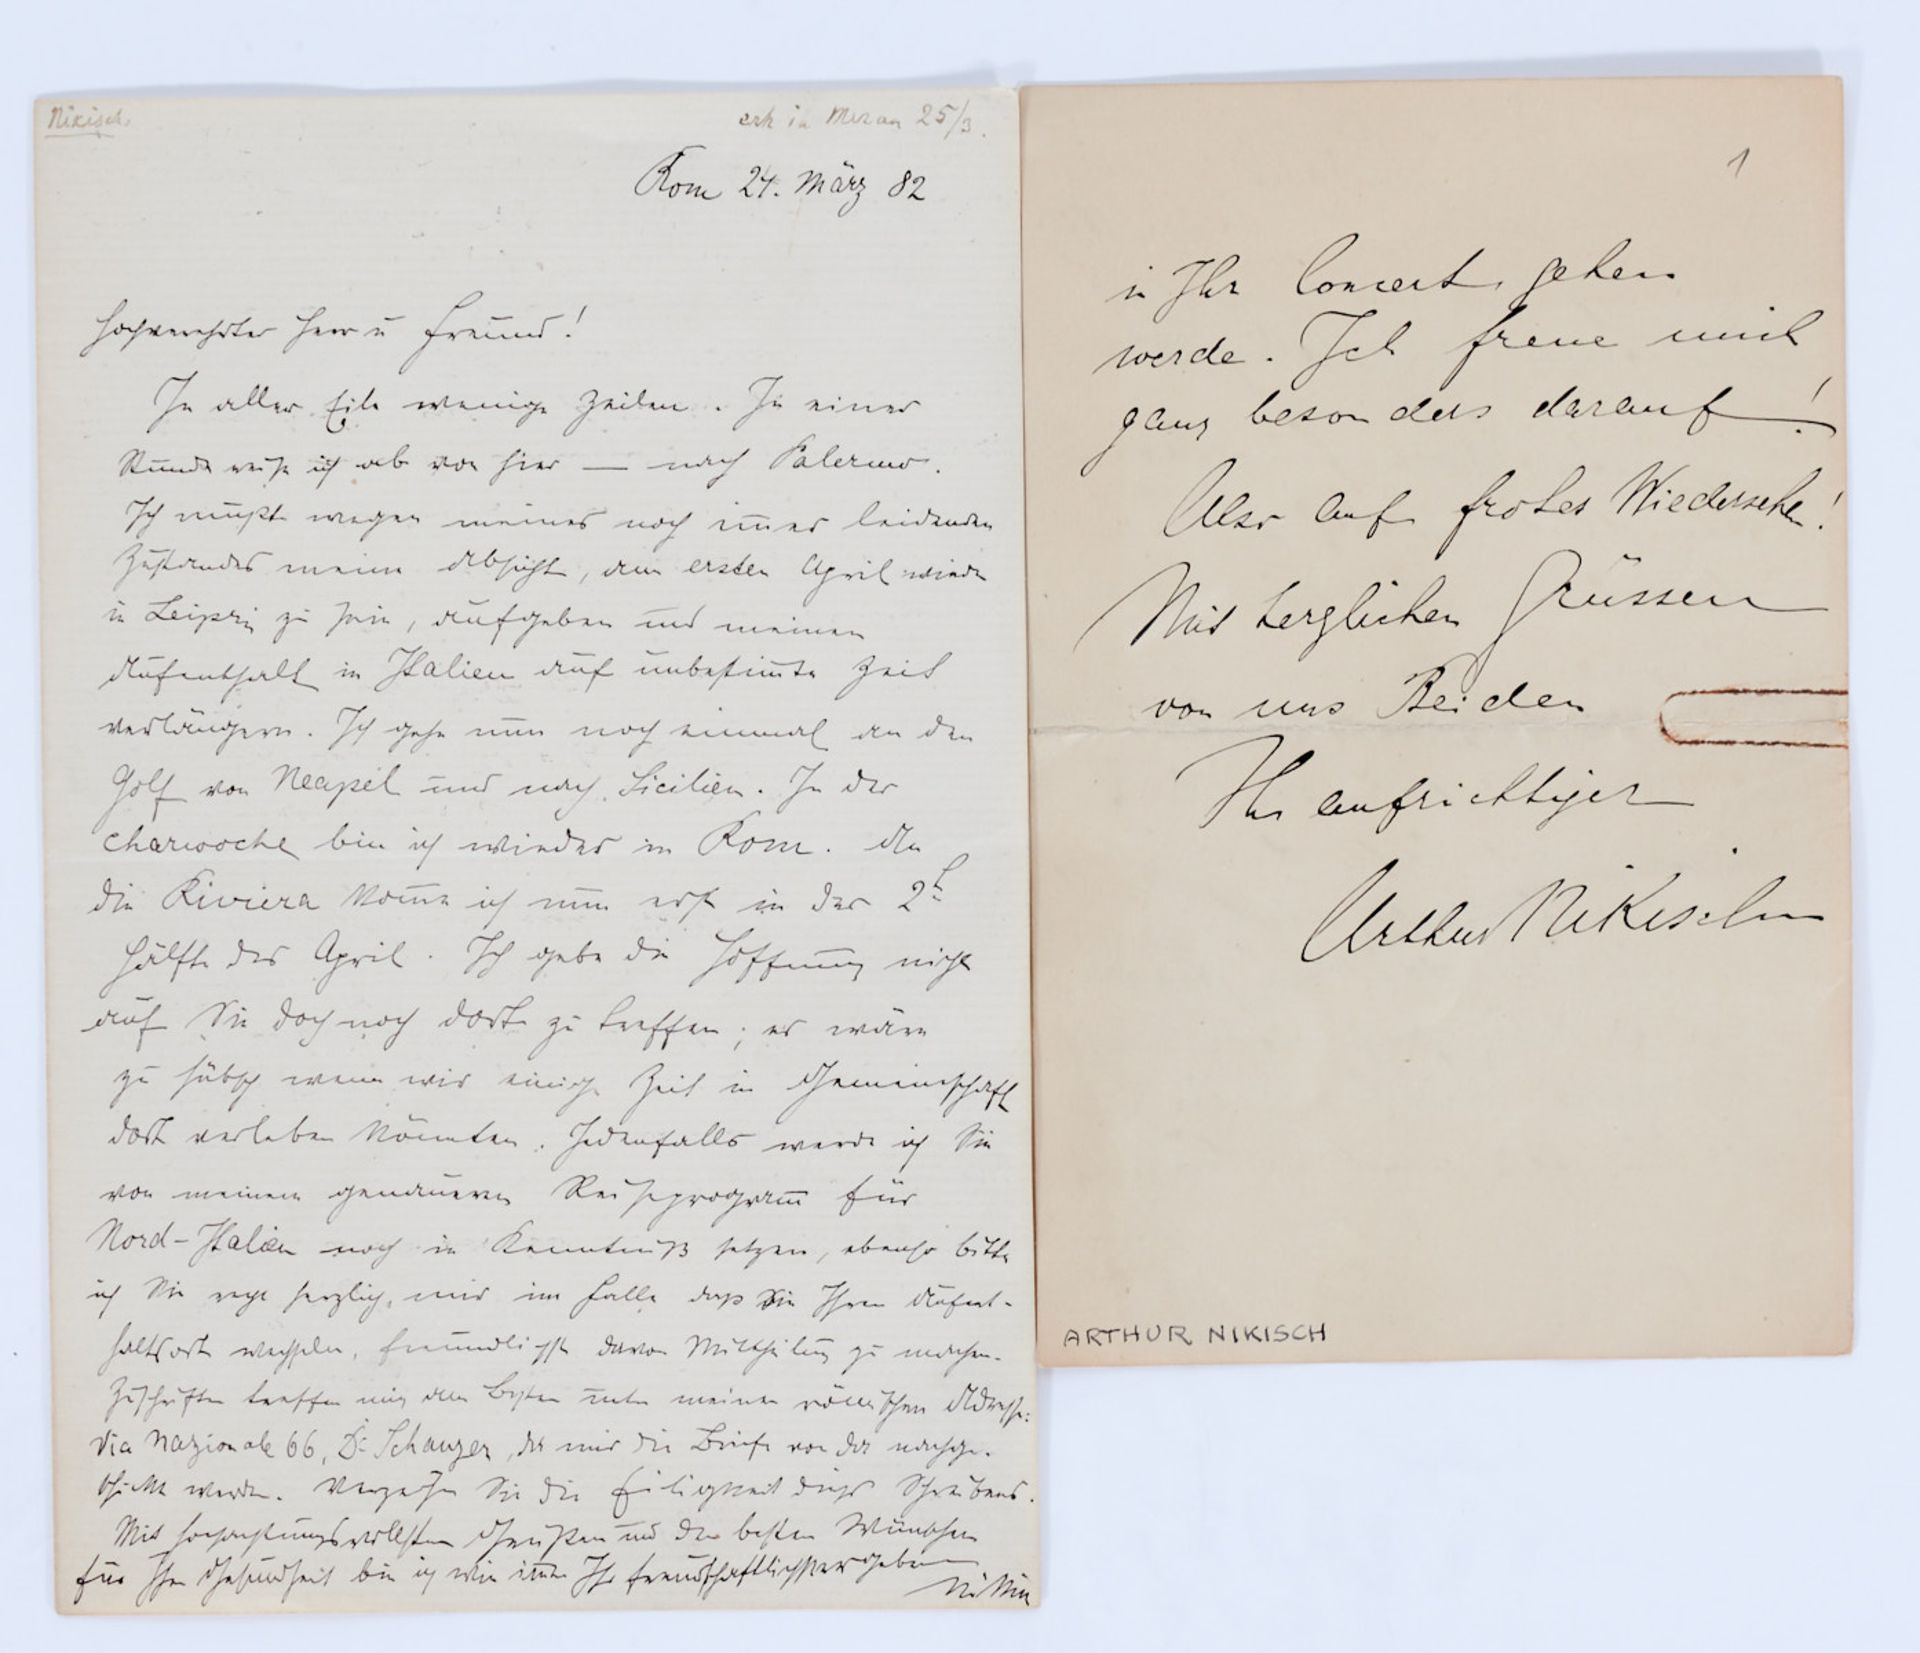 Nikisch.
erh in Meran 25/3.
Rom 24. März 82
Hochverehrter Herr u Freund!
In aller Eile wenige Zeilen. In einer
Stunde reise ich ab von hier — nach Palermo.
Ich mußte wegen meines noch im̅er leidenden
Zustandes meine Absicht, am ersten April wieder
in Leipzig zu sein, aufgeben und meinen
Aufenthalt in Italien auf unbestim̅te Zeit
verlängern. Ich gehe nun noch einmal an den
Golf von Neapel und nach Sicilien. In der
Charwoche bin ich wieder in Rom. An
die Riviera kom̅e ich nun erst in der 2t
Hälfte des April. Ich gebe die Hoffnung nicht
auf Sie doch noch dort zu treffen; es wäre
zu hübsch wenn wir einige Zeit in Gemeinschaft
dort verleben könnten. Jedenfalls werde ich Sie
von meinem genaueren Reiseprogram̅ für
Nord-Italien noch in Kenntniß setzen, ebenso bitte
ich Sie recht herzlich, mir im Falle daß Sie Ihren Aufent-
haltsort wechseln, freundlichst davon Mittheilung zu machen.
Zuschriften treffen mich am Besten unter meiner römischen Adresse:
Via Nazionale 66, Dr Schanzer, da mir die Briefe von da nachge-
schickt werden. Verzeihen Sie die Eiligkeit dieses Schreibens.
Mit hochachtungsvollsten Grüßen und den besten Wünschen
für Ihre Gesundheit bin ich wie im̅er Ihr freundschaftlichst ergebener
1
in Ihr Concert gehen
werde. Ich freue mich
ganz besonders darauf!
Also auf frohes Wiedersehen!
Mit herzlichen Grüssen
von uns Beiden
Ihr aufrichtiger
Arthur Nikisch
ARTHUR NIKISCH